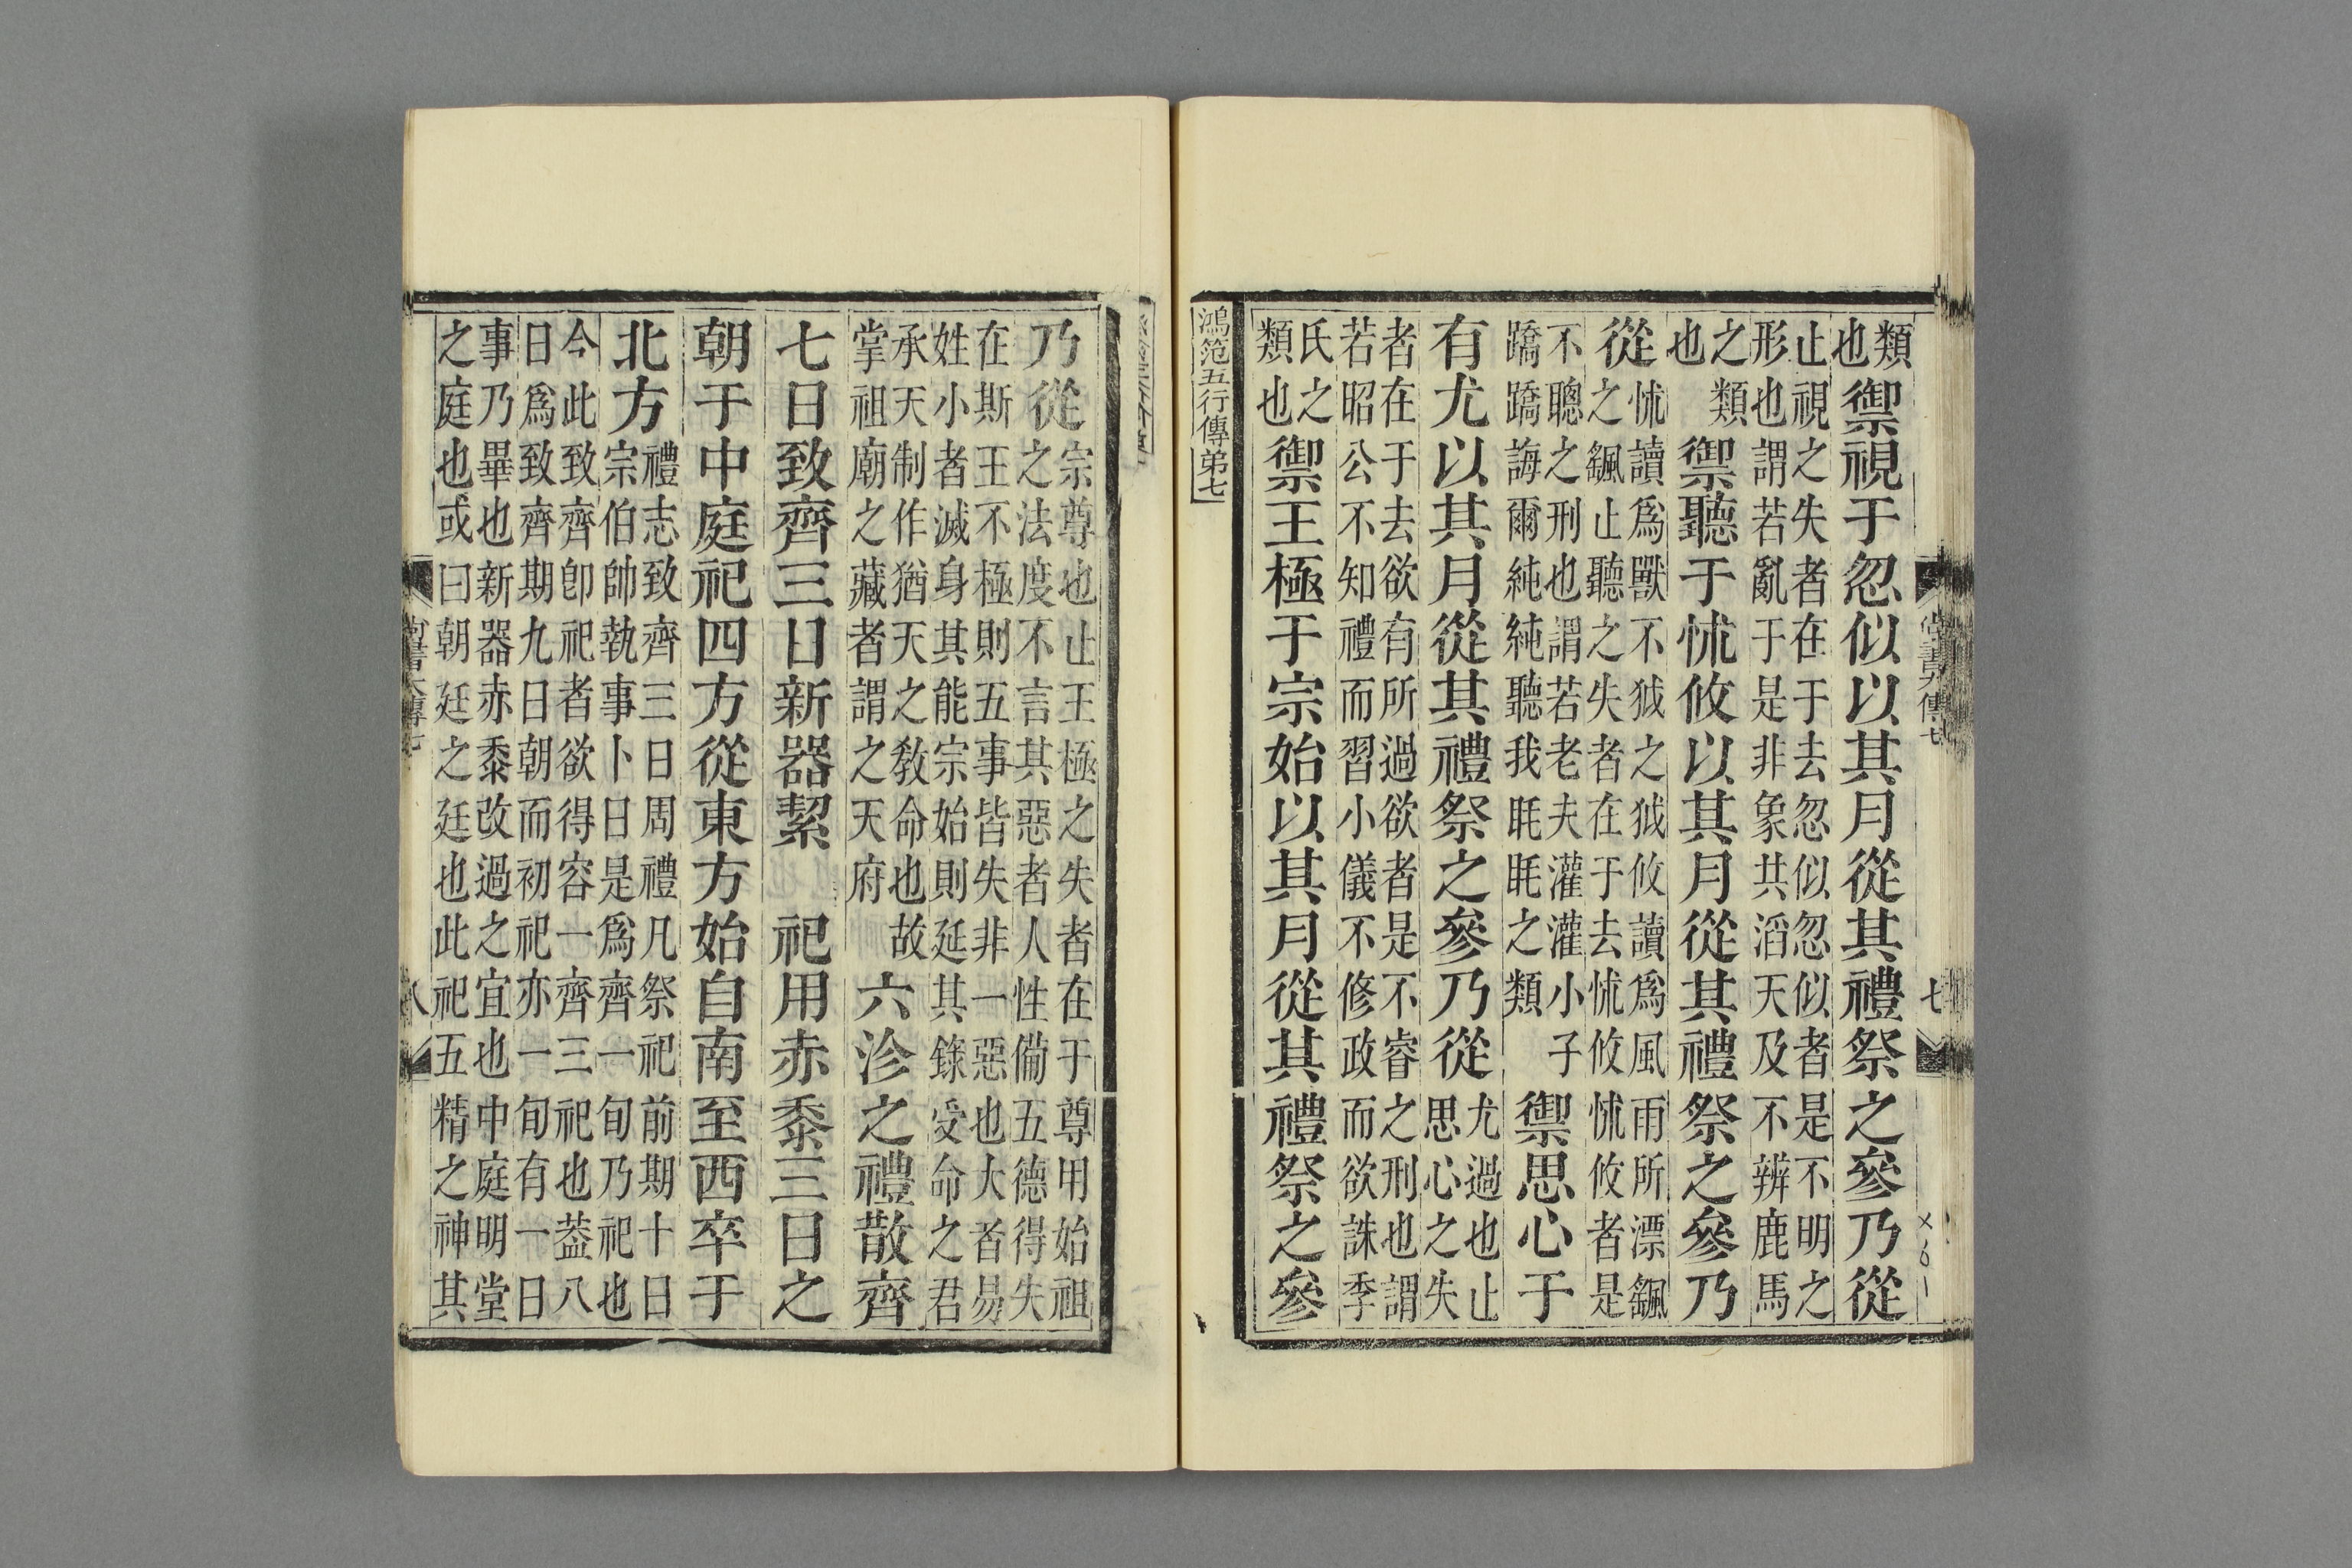 尚書大傳七 七
類
也
禦視于忽似以其月從其禮祭之參乃從
止視之失者在于去忽似忽似者是不明之
形也謂若亂于是非象共滔天及不辨鹿馬
之類
也
禦聽于怵攸以其月從其禮祭之參乃
從
怵讀爲獸不狘之狘攸讀爲風雨所漂颻
之颻止聽之失者在于去怵攸怵攸者是
不聰之刑也謂若老夫灌灌小子
蹻蹻誨爾純純聽我眊眊之類
禦思心于
有尤以其月從其禮祭之參乃從
尤過也止
思心之失
者在于去欲有所過欲者是不睿之刑也謂
若昭公不知禮而習小儀不修政而欲誅季
氏之
類也
禦王極于宗始以其月從其禮祭之參
鴻笵五行傳弟七
乃從
宗尊也止王極之失者在于尊用始祖
之法度不言其惡者人性備五德得失
在斯王不極則五事皆失非一惡也大者易
姓小者滅身其能宗始則延其錄受命之君
承天制作猶天之敎命也故
掌祖廟之藏者謂之天府
六沴之禮散齊
七日致齊三日新器絜祀用赤黍三日之
朝于中庭祀四方從東方始自南至西卒于
北方
禮志致齊三日周禮凡祭祀前期十日
宗伯帥執事卜日是爲齊一旬乃祀也
今此致齊卽祀者欲得容一齊三祀也葢八
日爲致齊期九日朝而初祀亦一旬有一日
事乃畢也新器赤黍改過之宜也中庭明堂
之庭也或曰朝廷之廷也此祀五精之神其
尚書大傳七 八